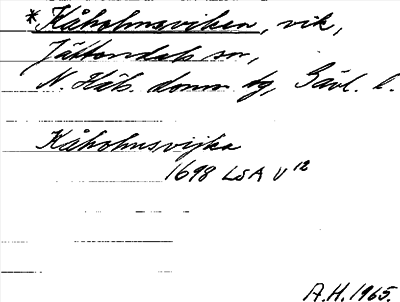 *Kåholmsviken, vik,
Jättendals sn,
N. Häls. doms. tg, Gävl. l.
Kåholmsvijka
1698 LSA V 12
A.H. 1965.